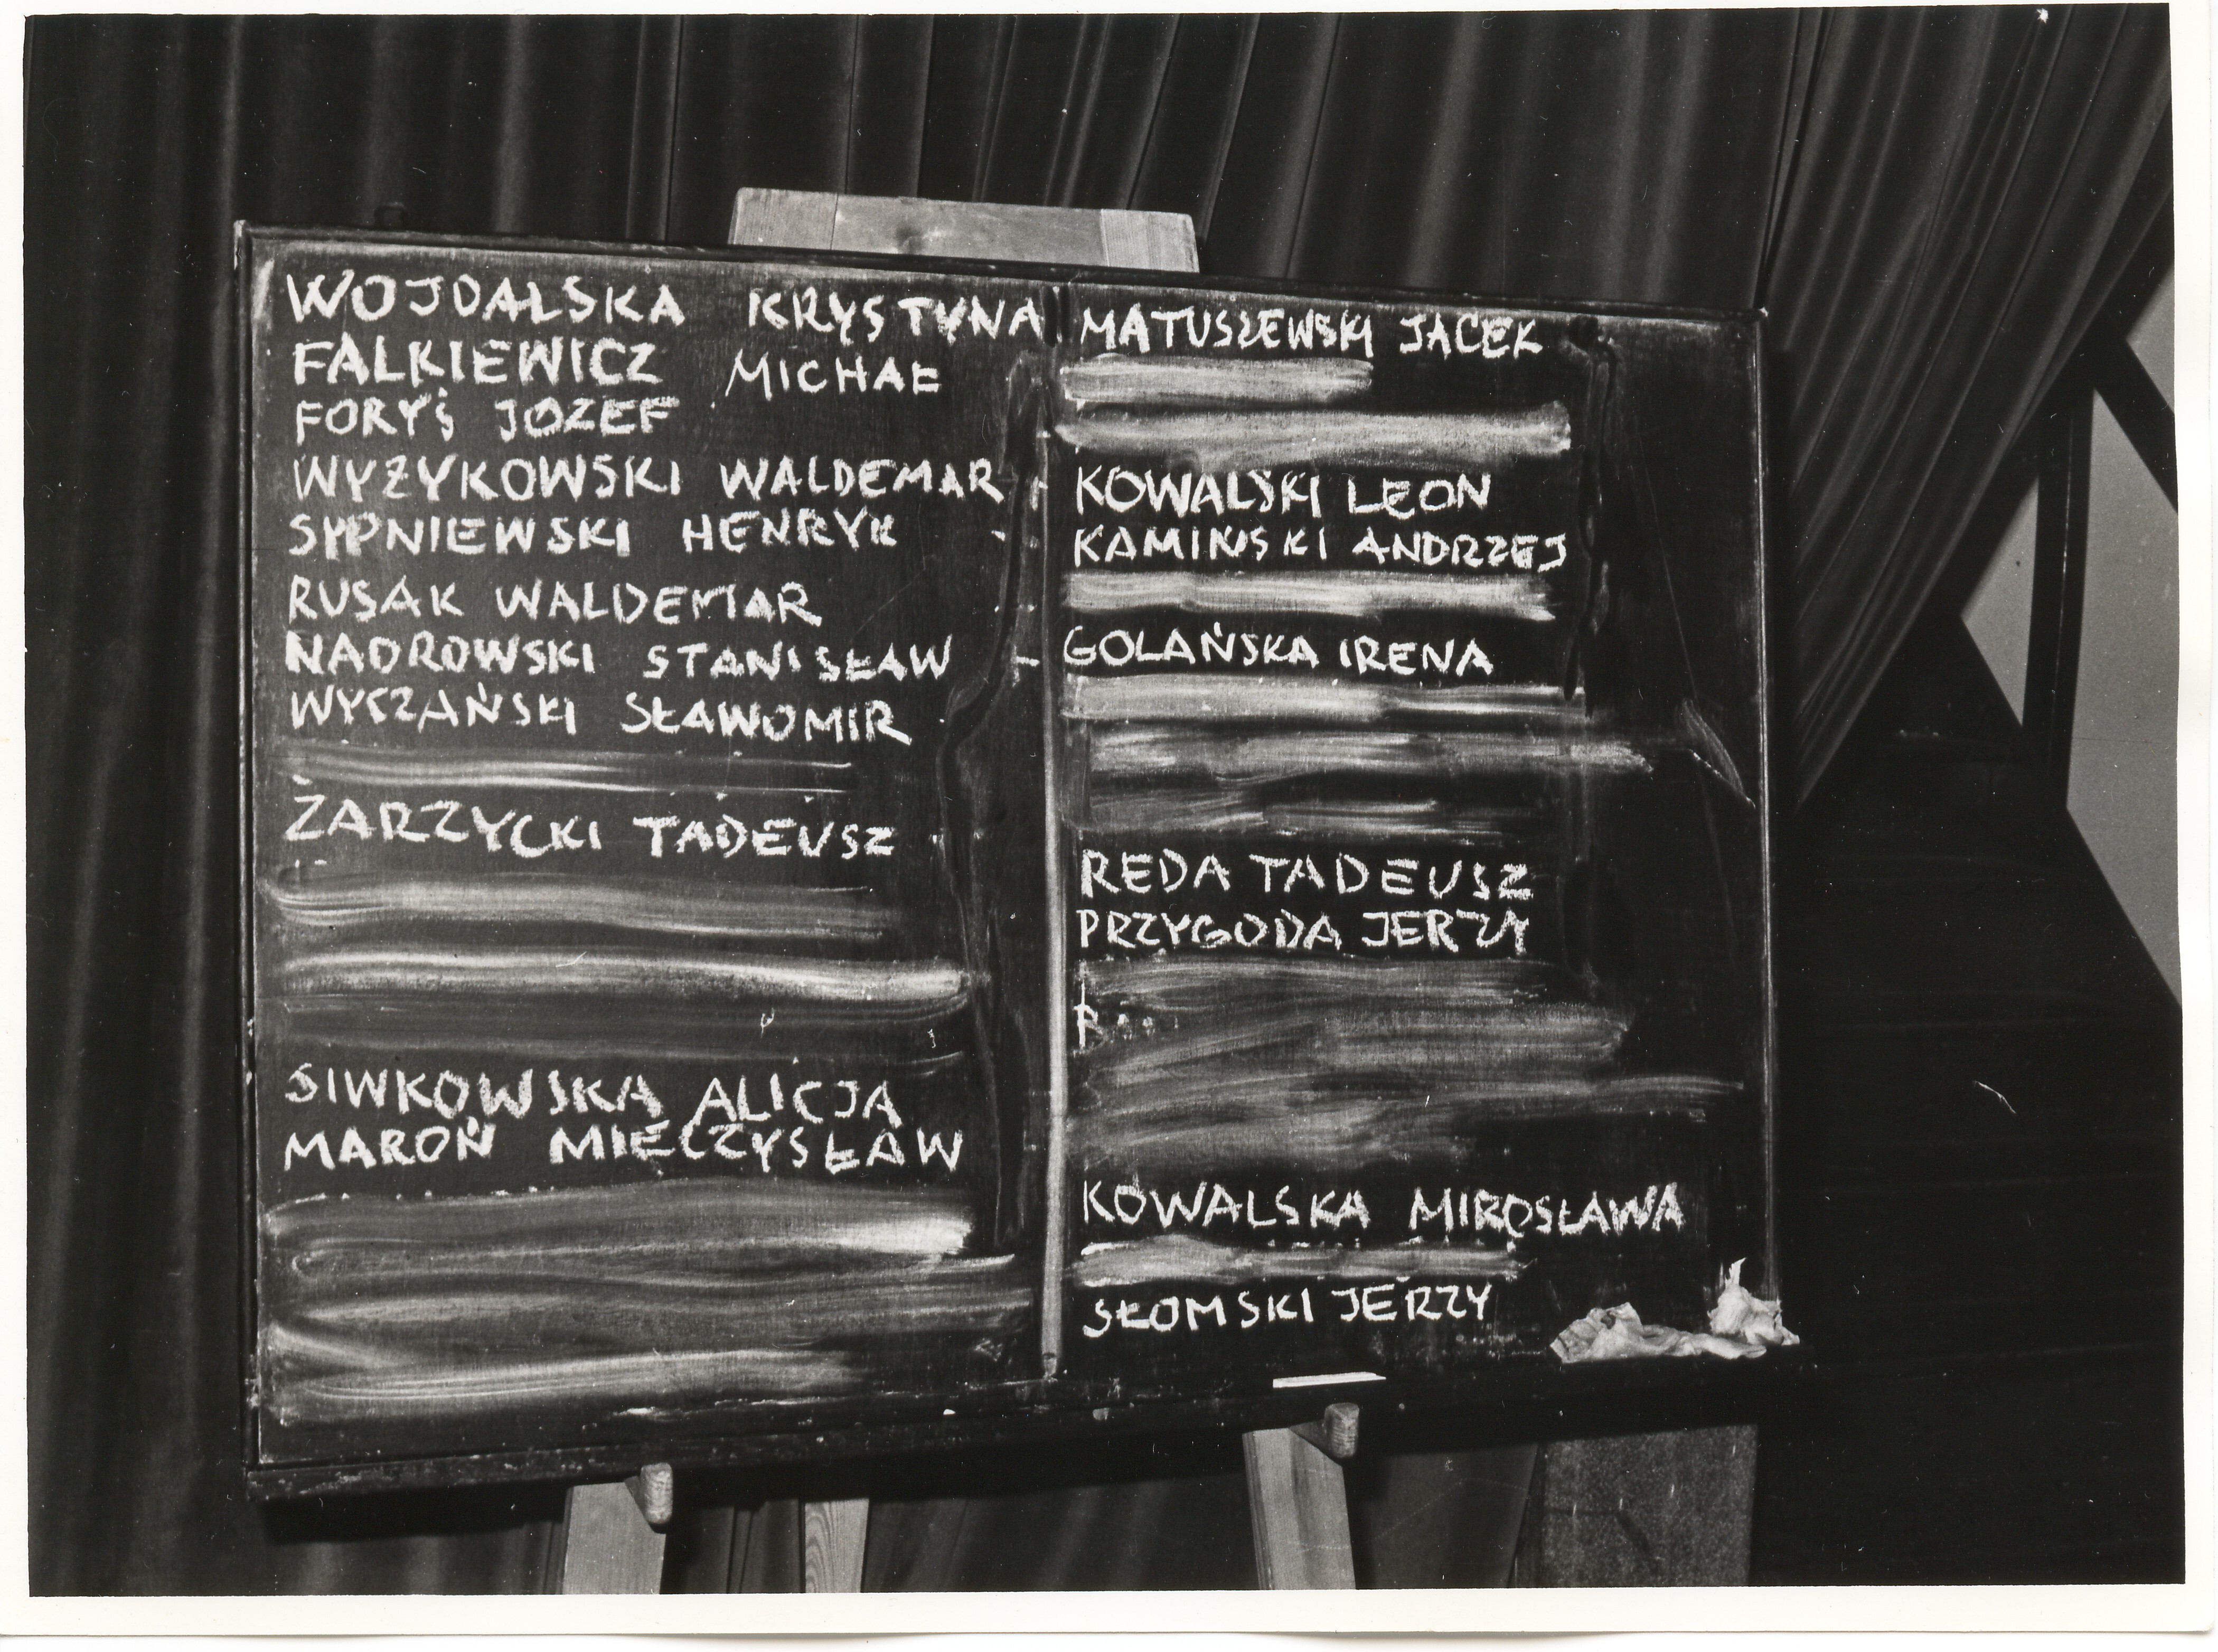 WOJDALSKA KRYSTYNA
FALKIEWICZ MICHAŁ
FORYŚ JOZEF
WYZYKOWSKI WALDEMAR
SYPNIEWSKI HENRYK
RUSAK WALDEMAR
NADROWSKI STANISŁAW
WYCZAŃSKI SŁAWOMIR
ŻARZYCKI TADEUSZ
SIWKOWSKA ALICJA
MAROŃ MIECZYSŁAW
MATUSZEWSKI JACEK
KOWALSKI LEON
KAMINSKI ANDRZEJ
GOLAŃSKA IRENA
REDA TADEUSZ
PRZYGODA JERZY
KOWALSKA MIROSŁAWA
SŁOMSKI JERZY